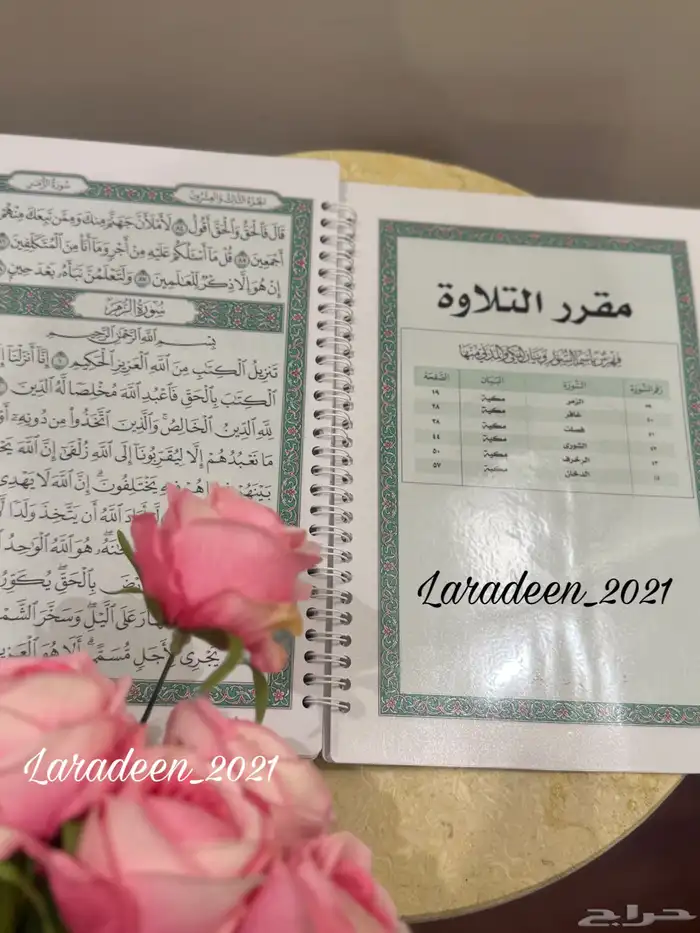 الجزء الثالث والعشرون
قَالَ فَالْحَقُّ وَالْحَقَّ أَقُولُ ٨٤ لَأَمْلَأَنَّ جَهَنَّمَ مِنكَ وَمِمَّن تَبِعَكَ مِنْهُمْ
أَجْمَعِينَ ٨٥ قُلْ مَا أَسْأَلُكُمْ عَلَيْهِ مِنْ أَجْرٍ وَمَا أَنَا مِنَ الْمُتَكَلِّفِينَ
إِنْ هُوَ إِلَّا ذِكْرٌ لِّلْعَالَمِينَ ٨٧ وَلَتَعْلَمُنَّ نَبَأَهُ بَعْدَ حِينٍ
سُورَةُ الزُّمَرِ
بِسْمِ اللَّهِ الرَّحْمَٰنِ الرَّحِيمِ
تَنزِيلُ الْكِتَابِ مِنَ اللَّهِ الْعَزِيزِ الْحَكِيمِ ١ إِنَّا أَنزَلْنَا
الْكِتَابَ بِالْحَقِّ فَاعْبُدِ اللَّهَ مُخْلِصًا لَّهُ الدِّينَ
لِلَّهِ الدِّينُ الْخَالِصُ وَالَّذِينَ اتَّخَذُوا مِن دُونِهِ
مَا نَعْبُدُهُمْ إِلَّا لِيُقَرِّبُونَا إِلَى اللَّهِ زُلْفَىٰ إِنَّ اللَّهَ
بَيْنَهُمْ هُمْ فِيهِ يَخْتَلِفُونَ إِنَّ اللَّهَ لَا يَهْدِي
اللَّهُ أَن يَتَّخِذَ وَلَدًا
هُوَ اللَّهُ الْوَاحِدُ
بِالْحَقِّ يُكَوِّرُ
عَلَى اللَّيْلِ وَسَخَّرَ الشَّمْسَ
يَجْرِي لِأَجَلٍ مُّسَمًّى أَلَا هُوَ الْعَزِيزُ
مقرر التلاوة
فهرس بأسماء السور وبيان المكي والمدني منها
رقم السورة السورة البيان الصفحة
٣٩ الزمر مكية ١٩
٤٠ غافر مكية ٢٨
٤١ فصلت مكية ٣٨
٤٢ الشورى مكية ٤٤
٤٣ الزخرف مكية ٥٠
٤٤ الدخان مكية ٥٧
Laradeen_2021
Laradeen_2021
حراج